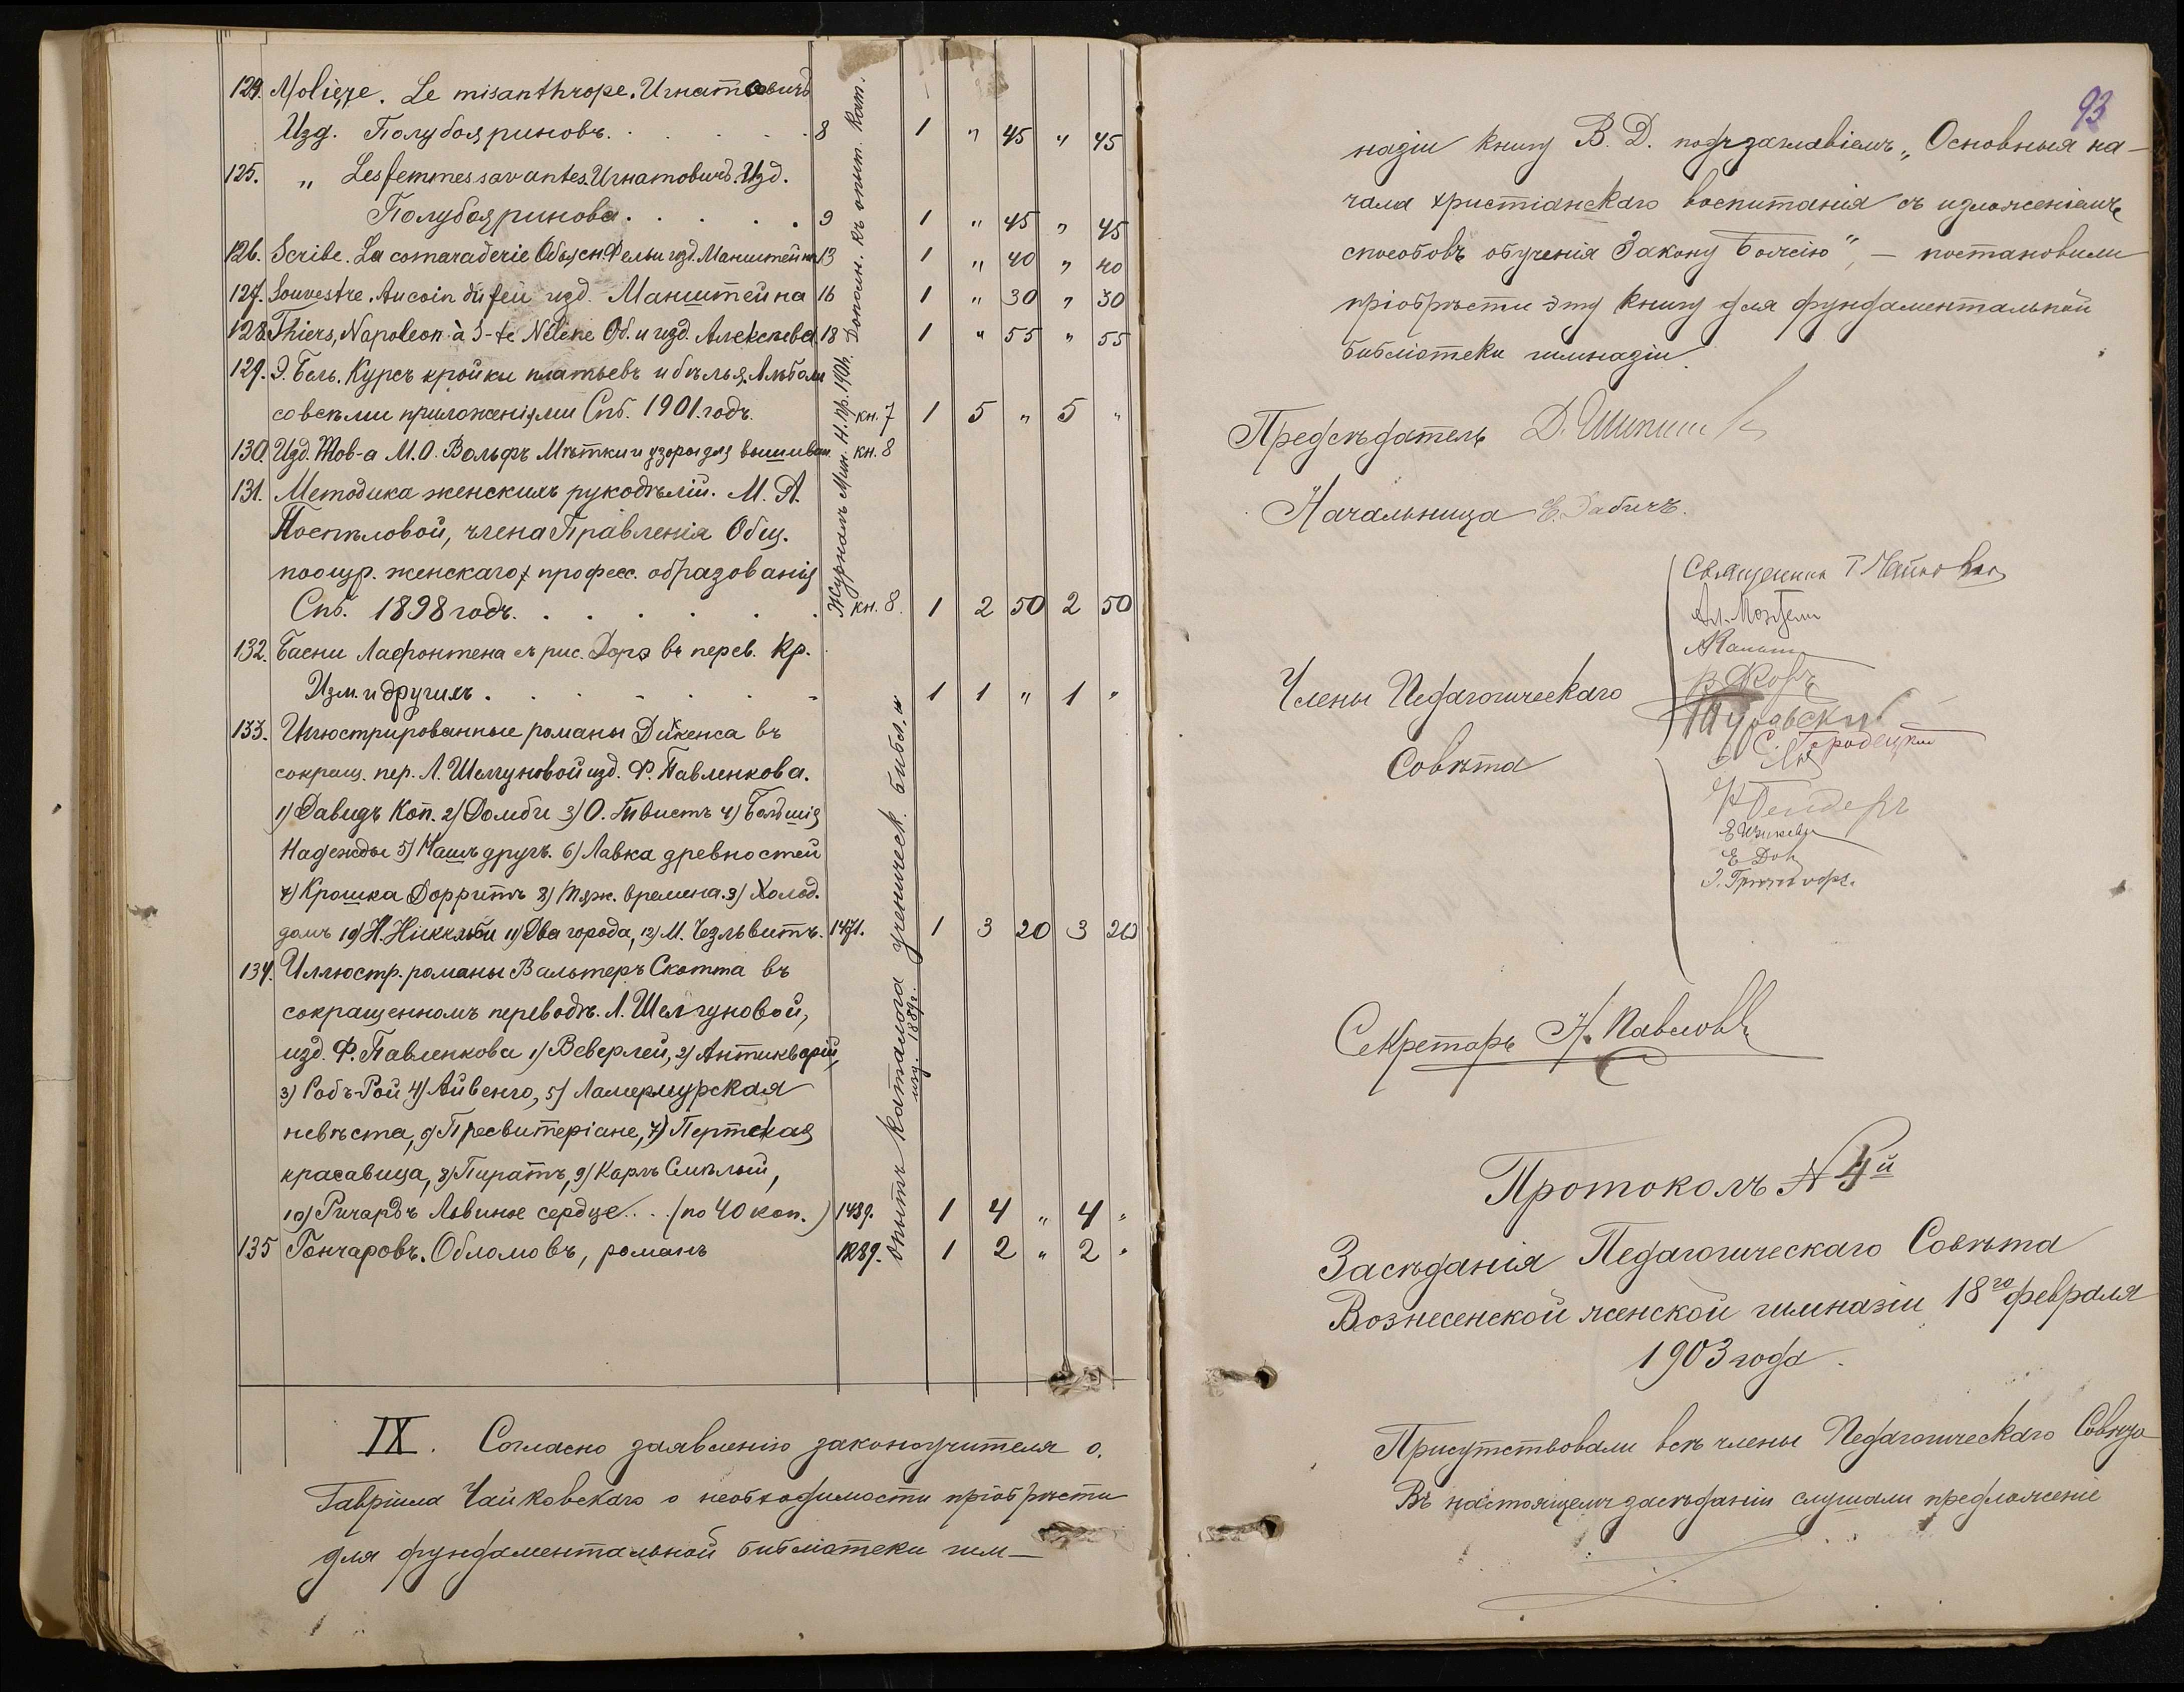 124. Molière. Le misanthrope. Игнатовичъ
Изд. Полубояриновъ. . . . . . 8 1 " 45 " 45
125. " Les femmes savantes. Игнатовичъ. Изд.
Полубояринова . . . . . 9 1 " 45 " 45
126. Scribe. La comaraderie Объясн. Фельи изд. Манштейна 13 1 " 40 " 40
127. Souvestre. Au coin du feu изд. Манштейна 16 1 " 30 " 30
128. Thiers, Napoleon à S-te Hélène Об. и изд. Алексѣева 18 1 " 55 " 55
129. Э. Бель. Курсъ кройки платьевъ и бѣлья. Альбомъ
со всѣми приложеніями Спб. 1901. годъ. кн. 7 1 5 " 5 "
130. Изд. Тов-а М. О. Вольфъ Мѣтки и узоры для вышиван. кн. 8
131. Методика женскихъ рукодѣлій. М. А.
Поспѣловой, члена Правленія Общ.
поощр. женскаго профес. образованія
Спб. 1898 годъ. . . . . . . кн. 8. 1 2 50 2 50
Журналъ Мин. Н. Пр. 190 г. Дополн. къ опыт. кат.
132. Басни Лафонтена съ рис. Дорэ въ перев. Кр.
Изм. и другихъ . . . . . . 1 1 " 1 "
133. Иллюстрированные романы Дикенса въ
сокращ. пер. Л. Шелгуновой изд. Ф. Павленкова.
1) Давидъ Коп. 2) Домби 3) О. Твистъ 4) Большія
Надежды 5) Нашъ другъ. 6) Лавка древностей
7) Крошка Дорритъ 8) Тяж. времена. 9) Холод.
домъ 10) Н. Никкльби 11) Два города, 12) М. Чезльвитъ. 1471. 1 3 20 3 20
134. Иллюстр. романы Вальтеръ Скотта въ
сокращенномъ переводѣ. Л. Шелгуновой,
изд. Ф. Павленкова 1) Веверлей, 2) Антикварій,
3) Робъ-Рой 4) Айвенго, 5) Ламермурская
невѣста, 6) Пресвитеріане, 7) Пертская
красавица, 8) Пиратъ, 9) Карлъ Смѣлый,
10) Ричардъ Львиное сердце . . . (по 40 коп.) 1439. 1 4 " 4 "
135 Гончаровъ. Обломовъ, романъ 1289. 1 2 " 2 "
Опытъ каталога ученическ. библ.
изд. 1889 г.
IX. Согласно заявленію законоучителя о.
Гавріила Чайковскаго о необходимости пріобрѣсти
для фундаментальной библіотеки гим-
93
назіи книгу В. Д. подъ заглавіемъ „Основныя на-
чала христіанскаго воспитанія съ изложеніемъ
способовъ обученія Закону Божію", — постановили
пріобрѣсти эту книгу для фундаментальной
библіотеки гимназіи.
Предсѣдатель Д.
Начальница Е.
Члены Педагогическаго
Совѣта
Священникъ Г. Чайковскій
С. Городецкій
Секретарь Н. Павловъ
Протоколъ № 4й
Засѣданія Педагогическаго Совѣта
Вознесенской женской гимназіи 18го февраля
1903 года.
Присутствовали всѣ члены Педагогическаго Совѣта
Въ настоящемъ засѣданіи слушали предложеніе